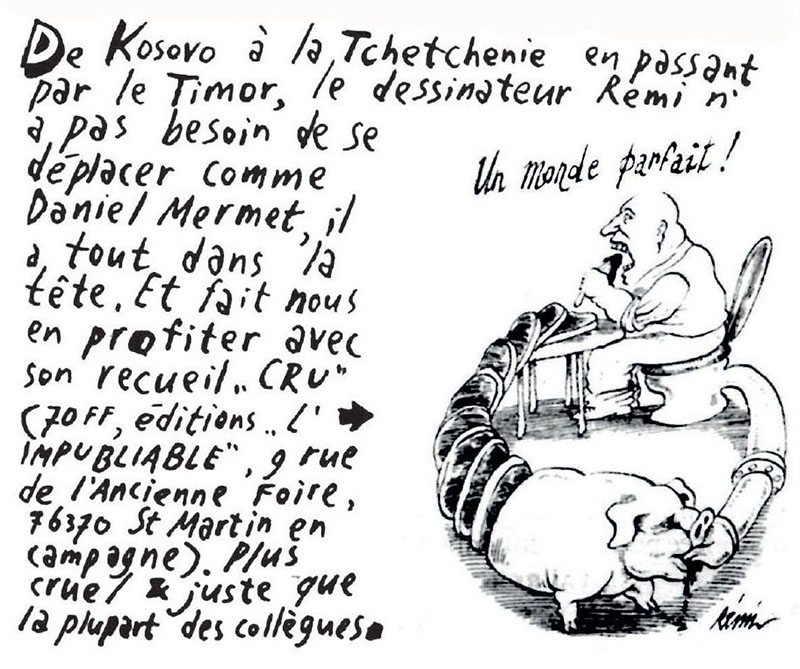 De Kosovo à la Tchetchenie en passant
par le Timor, le dessinateur Rémi n'
a pas besoin de se
déplacer comme
Daniel Mermet, il
a tout dans la
tête. Et fait nous
en profiter avec
son recueil „CRU"
(70FF, éditions „L'
IMPUBLIABLE", 9 rue
de l'Ancienne Foire,
76370 St Martin en
campagne). Plus
cruel & juste que
la plupart des collègues.
Un monde parfait !
Rémi